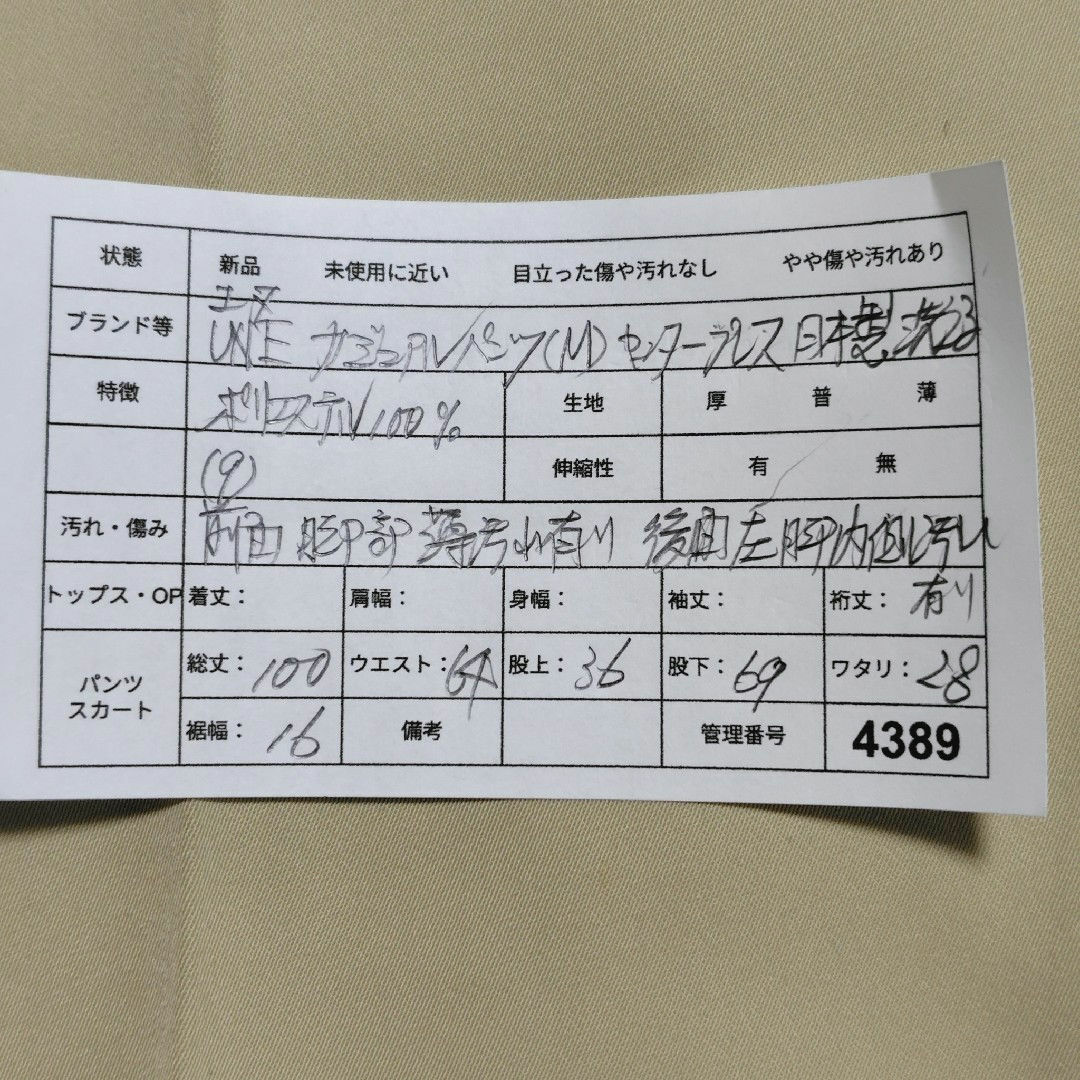 状態 新品 未使用に近い 目立った傷や汚れなし やや傷や汚れあり
ブランド等 カジュアルパンツ(M) センタープレス 日本製
特徴 ポリエステル100% 生地 厚 普 薄
(9) 伸縮性 有 無
汚れ・傷み 前面 脚部 薄汚れ有り 後面左脚内側汚れ
トップス・OP 着丈: 肩幅: 身幅: 袖丈: 裄丈: 有り
パンツ スカート 総丈:100 ウエスト:64 股上:36 股下:69 ワタリ:28
裾幅:16 備考 管理番号 4389